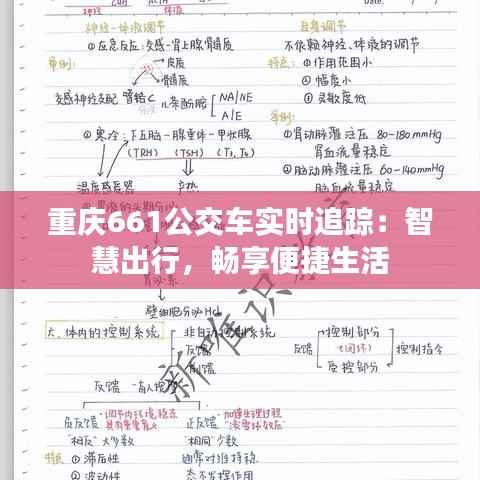 神经-体液调节
自身调节
①应急反应：交感-肾上腺髓质
不依赖神经、体液的调节
举例：
皮质
髓质
特点：①作用范围小
②幅度小
③灵敏度低
交感神经支配
儿茶酚胺
NA/NE
A/E
②寒冷：下丘脑-腺垂体-甲状腺
(TRH) (TSH) (T₃, T₄)
举例：
①肾动脉灌注压 80-180mmHg
肾血流量稳定
灌注压 60-140mmHg
温度感受器
产热
重庆661公交车实时追踪：智
慧出行，畅享便捷生活
胃泌素
壁细胞分泌HCl
六、体内的控制系统
非自动控制系统
反馈
前馈
反馈
控制部分
(闭环)
受控部分
控制指令
反馈
负反馈
调节内环境稳态
正反馈
加速生理过程
"滚雪球效应"
"相反" 大多数
"相同" 少数
特点
①滞后性
通常对维持稳
②波动性
态不发挥作用